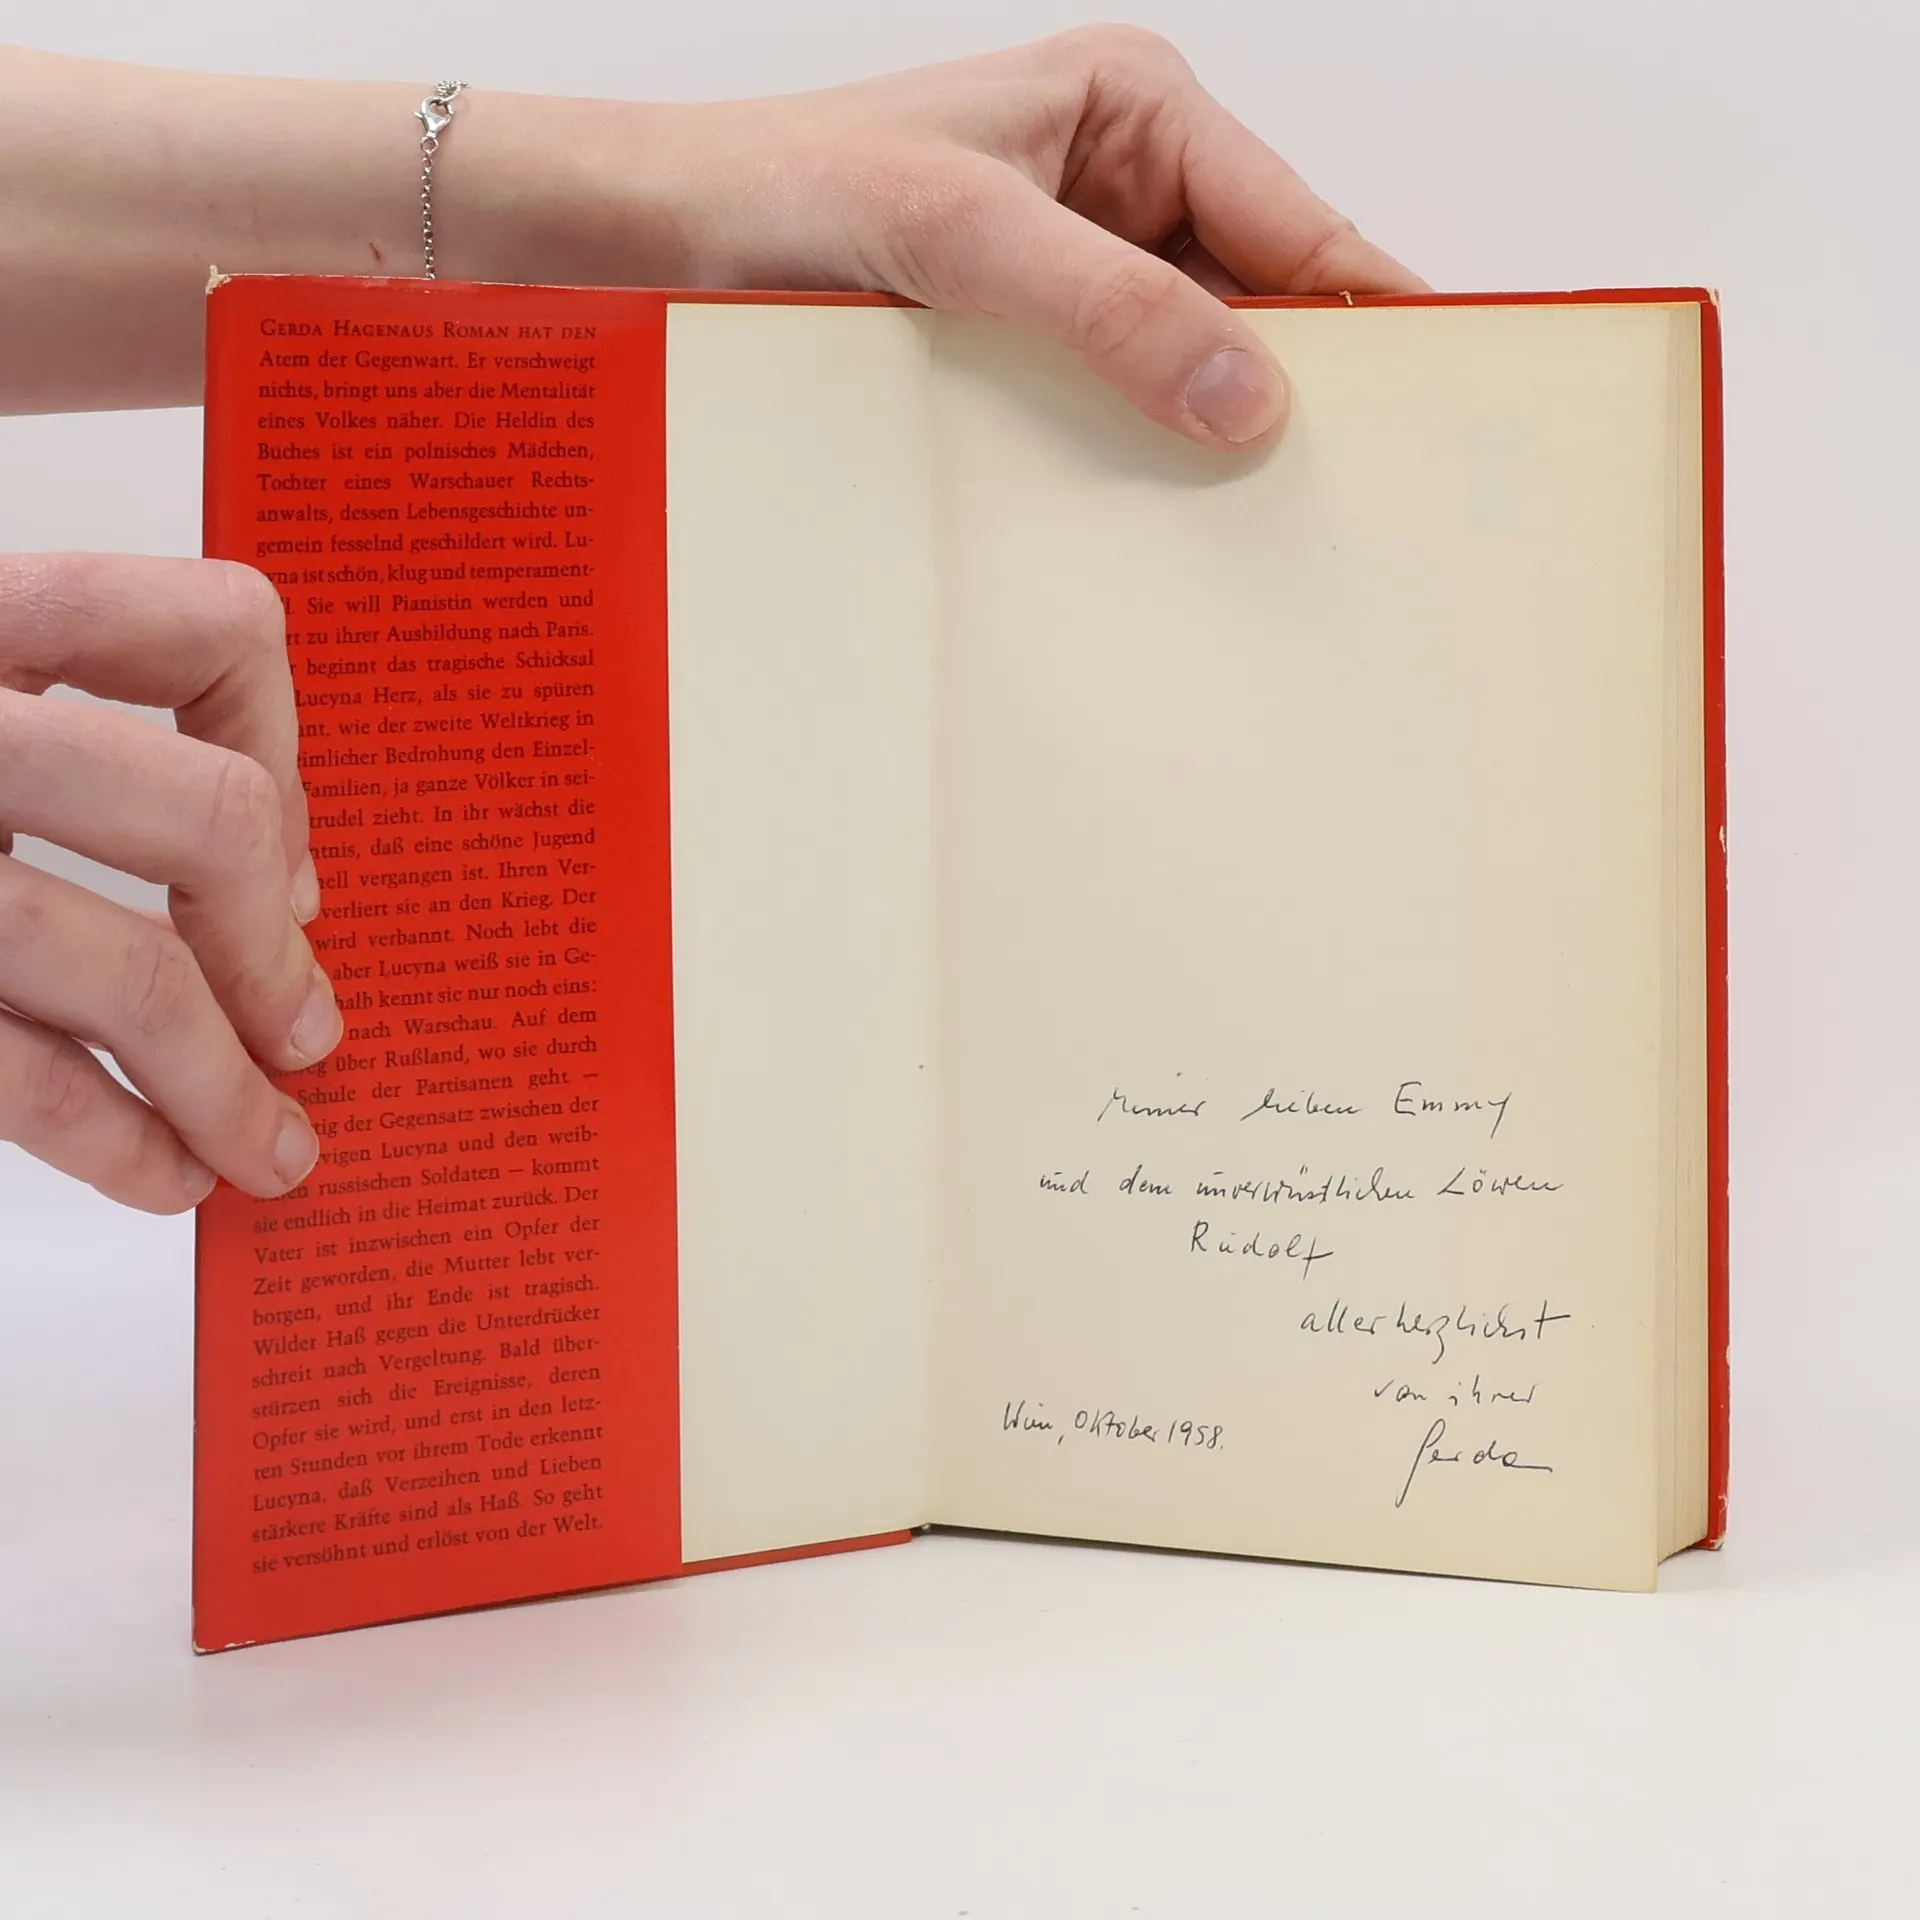 GERDA HAGENAUS ROMAN HAT DEN
Atem der Gegenwart. Er verschweigt
nichts, bringt uns aber die Mentalität
eines Volkes näher. Die Heldin des
Buches ist ein polnisches Mädchen,
Tochter eines Warschauer Rechts-
anwalts, dessen Lebensgeschichte un-
gemein fesselnd geschildert wird. Lu-
yna ist schön, klug und temperament-
l. Sie will Pianistin werden und
rt zu ihrer Ausbildung nach Paris.
r beginnt das tragische Schicksal
Lucyna Herz, als sie zu spüren
nnt, wie der zweite Weltkrieg in
imlicher Bedrohung den Einzel-
Familien, ja ganze Völker in sei-
trudel zieht. In ihr wächst die
ntnis, daß eine schöne Jugend
nell vergangen ist. Ihren Ver-
verliert sie an den Krieg. Der
wird verbannt. Noch lebt die
aber Lucyna weiß sie in Ge-
halb kennt sie nur noch eins:
nach Warschau. Auf dem
über Rußland, wo sie durch
Schule der Partisanen geht —
tig der Gegensatz zwischen der
rvigen Lucyna und den weib-
russischen Soldaten — kommt
sie endlich in die Heimat zurück. Der
Vater ist inzwischen ein Opfer der
Zeit geworden, die Mutter lebt ver-
borgen, und ihr Ende ist tragisch.
Wilder Haß gegen die Unterdrücker
schreit nach Vergeltung. Bald über-
stürzen sich die Ereignisse, deren
Opfer sie wird, und erst in den letz-
ten Stunden vor ihrem Tode erkennt
Lucyna, daß Verzeihen und Lieben
stärkere Kräfte sind als Haß. So geht
sie versöhnt und erlöst von der Welt.
Meiner lieben Emmy
und dem unverwüstlichen Löwen
Rudolf
allerherzlichst
von ihrer
Gerda
Wien, Oktober 1958.